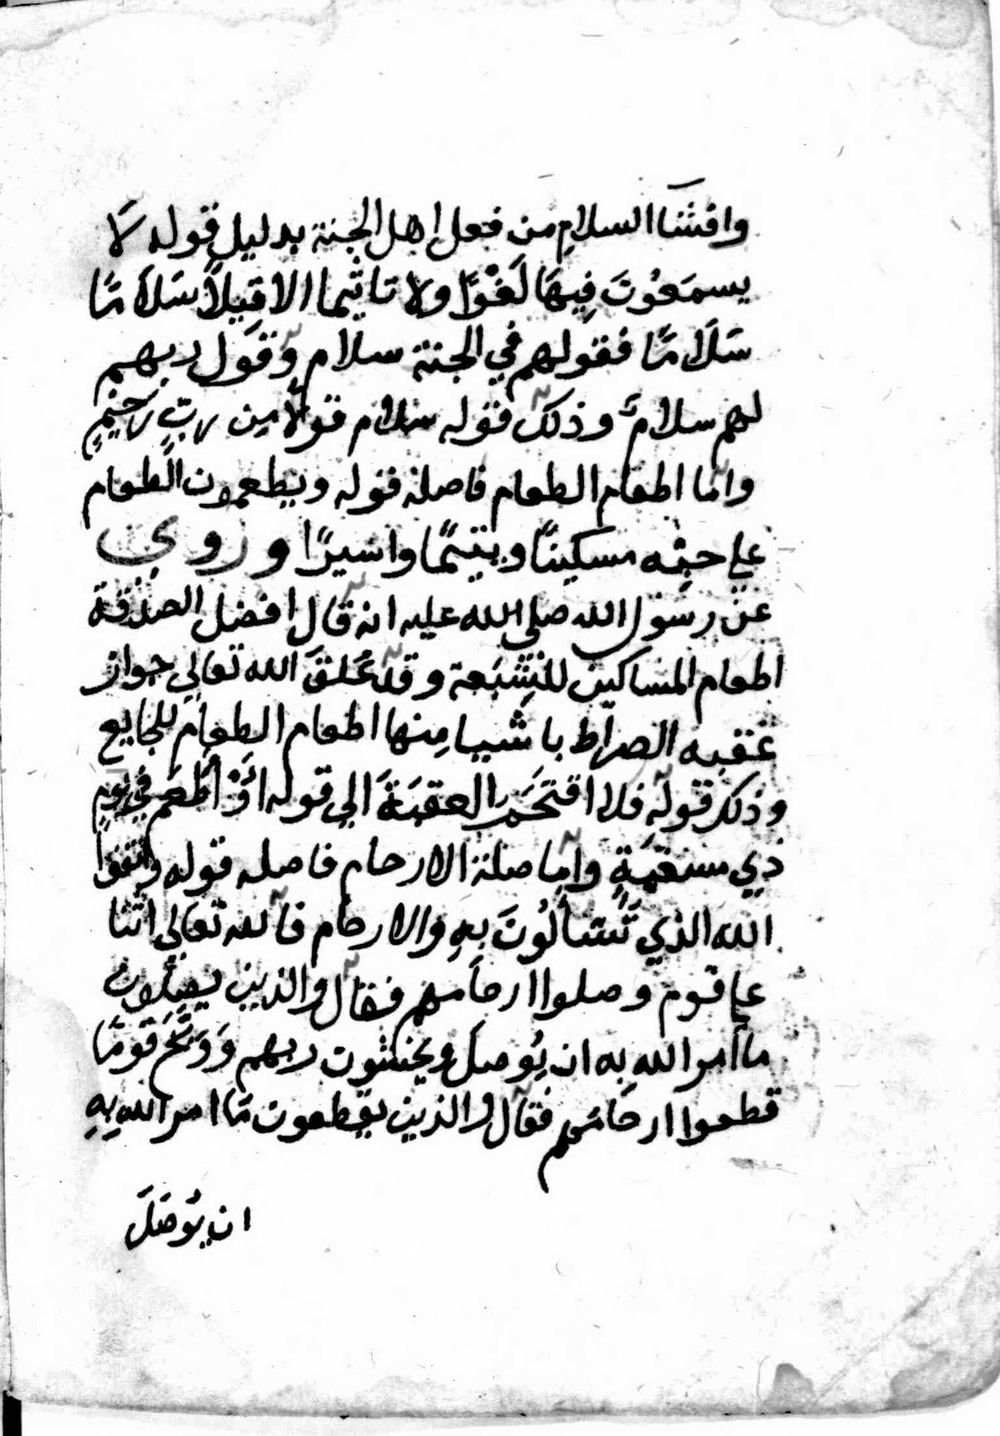 وافشآ السلامِ من فعل اهل الجنة بدليل قوله لَا
يسمَعُونَ فِيهَا لَغْوًا ولا تاثيما الا قِيلاً سَلَامًا
سَلَامًا فقولهم في الجنة سلام وقول ربهم
لهم سلامٌ وذلك قوله سلام قولًا مِن ربٍّ رَحِيْمٍ
واما اطعام الطعام فاصله قوله ويطعمون الطعام
على حبِّه مسكينًا ويتيمًا واسيرًا وروي
عن رسول الله صلى الله عليه انه قال افضل الصدقة
اطعام المساكين للشبعة وقد عَلقَ الله تعالى جواز
عقبه الصراط باشيا مِنها اطعام الطعام للجايع
وذلك قوله فلا اقتحَمَ العقبَةَ الي قوله اوْ أطعَم في يومٍ
ذي مسغبَةٍ وامِا صلة الارحام فاصله قوله واتقوا
الله الذي تَسّآلُونَ بِهِ والارحام فالله تعالى اثنا
على قوم وصلوا ارحامهم فقال والذين يصلون
مآ امر الله بِه ان يُوصل ويخشون ربهم وَوَبَّخَ قومًا
قطعوا ارحامَهم فقال والذين يقطعون مَا امر الله بِهِ
ان يُوصَلَ